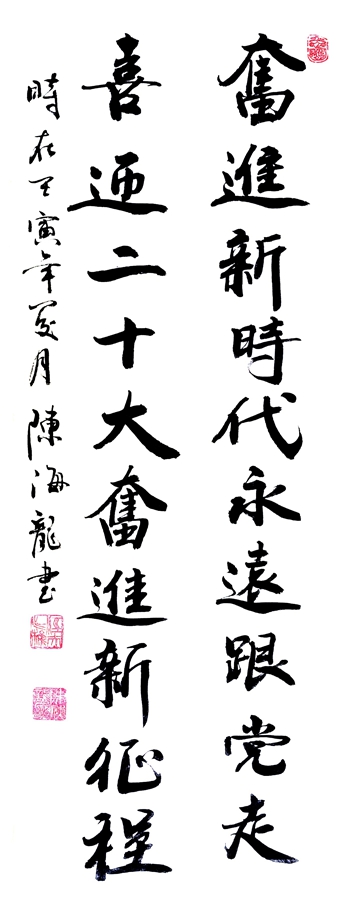 奮進新時代永遠跟党走
喜迎二十大奮進新征程
時在壬寅年夏月陳海龍书